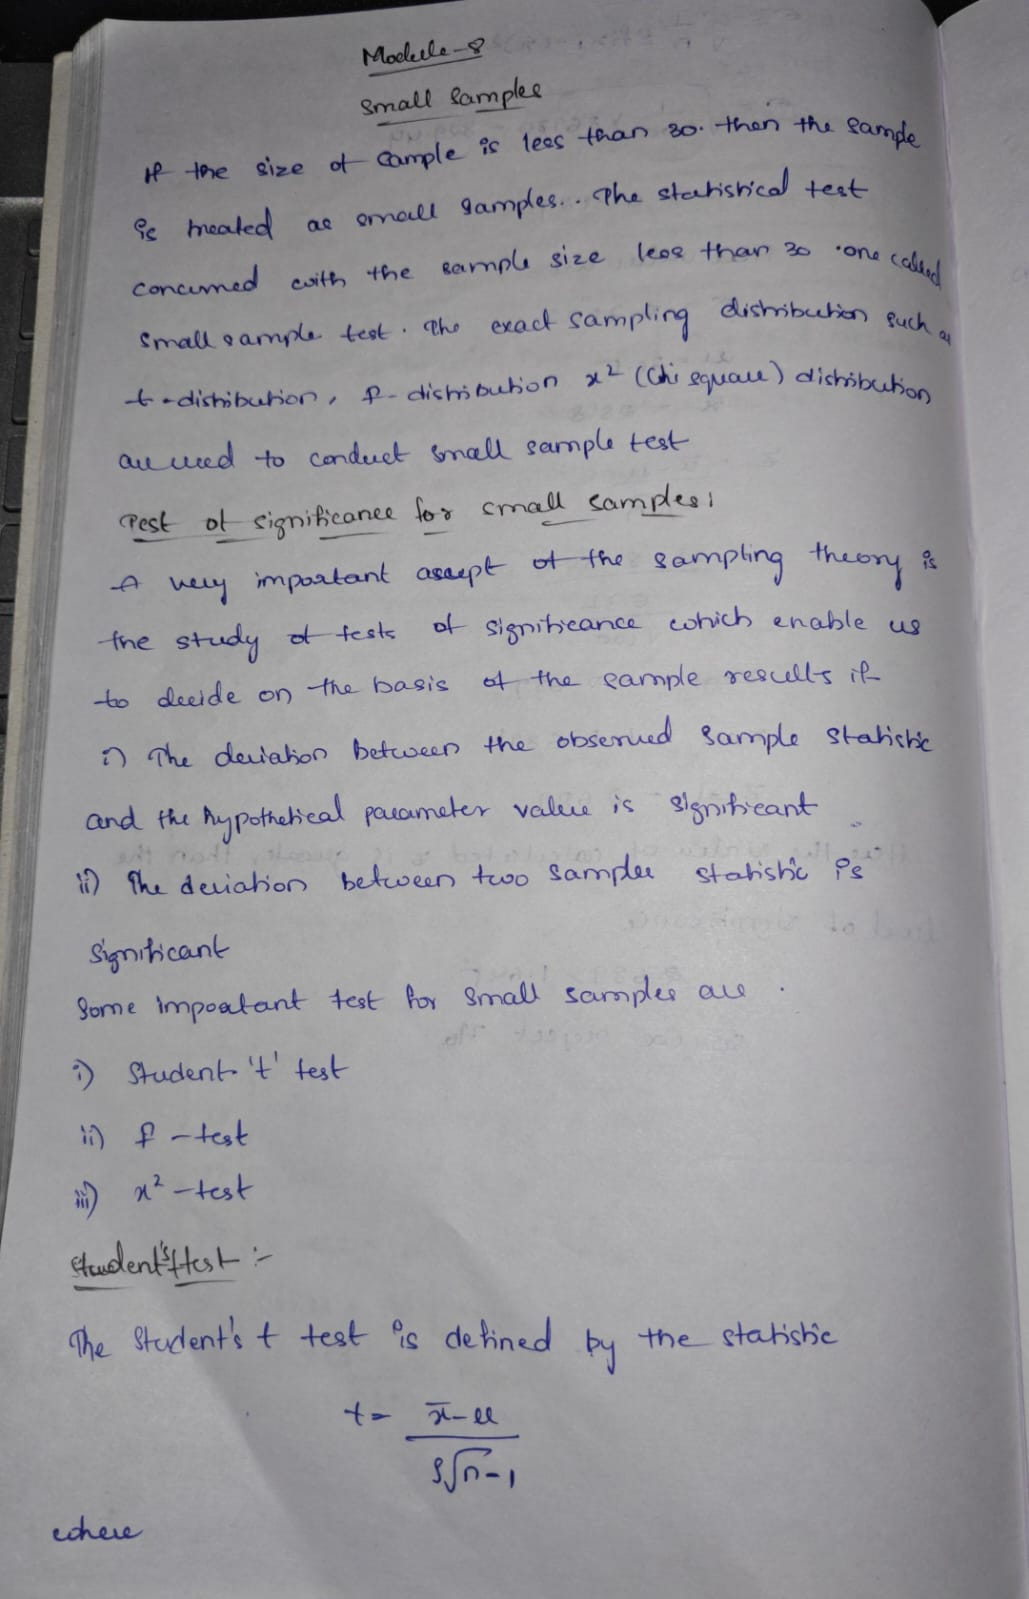 Module-8
Small Samples
If the size of sample is less than 30. then the sample
is treated as small samples.. The statistical test
concerned with the sample size less than 30 are called
small sample test. The exact sampling distribution such as
t-distribution, f-distribution x² (Chi square) distribution
are used to conduct small sample test
Test of significance for small samples:
A very important ascept of the sampling theory is
the study of tests of significance which enable us
to decide on the basis of the sample results if
i) The deviation between the observed sample statistic
and the hypothetical parameter value is significant
ii) The deviation between two samples statistic is
significant
Some important test for small samples are .
i) Student 't' test
ii) f - test
iii) x² - test
Student's t test :-
The Student's t test is defined by the statistic
t = x̄ - μ
S√n-1
where